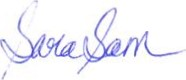 Sara Sam